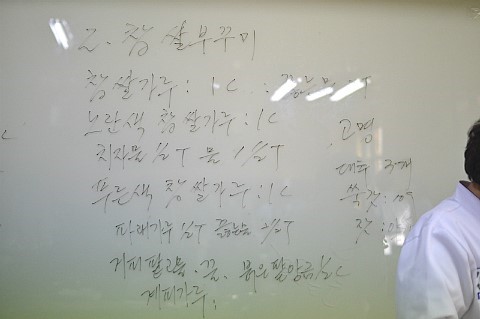 2. 찹쌀부꾸미
찹쌀가루 : 1C : 끓는물 2T
노란색 찹쌀가루 : 1C
치자물 1/2T 물 1 1/2T
푸른색 찹쌀가루 : 1C
파래가루 1/2T 끓는물
거피팥고물 · 꿀, 붉은팥앙금 1/2C
계피가루 :
고명
대추 3개
쑥갓 : 10g
잣 :